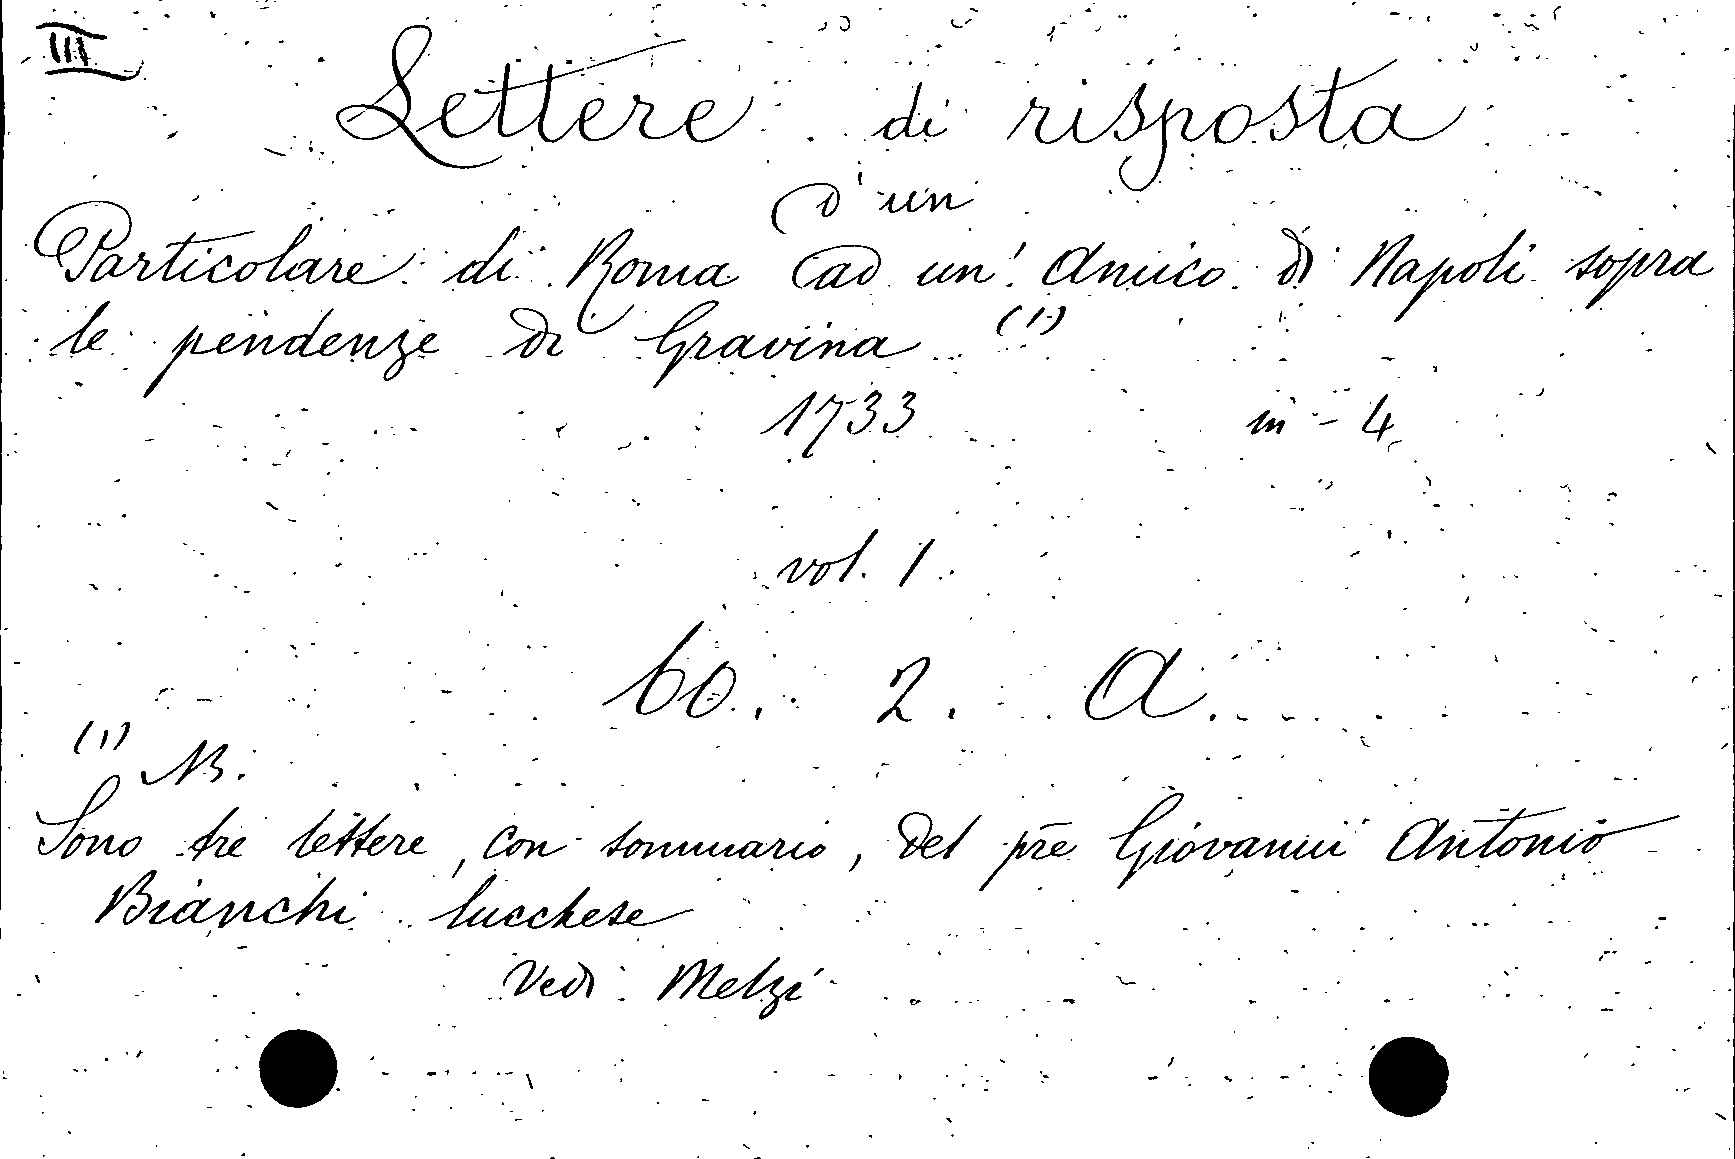 III
Lettere di risposta
d'un
Particolare di Roma ad un' Amico di Napoli sopra
le pendenze di Gravina (1)
1733 in - 4
vol. 1.
60. 2. A.
(1) NB.
Sono tre lettere, con sommario, del pre Giovanni Antonio
Bianchi lucchese
Vedi Melzi